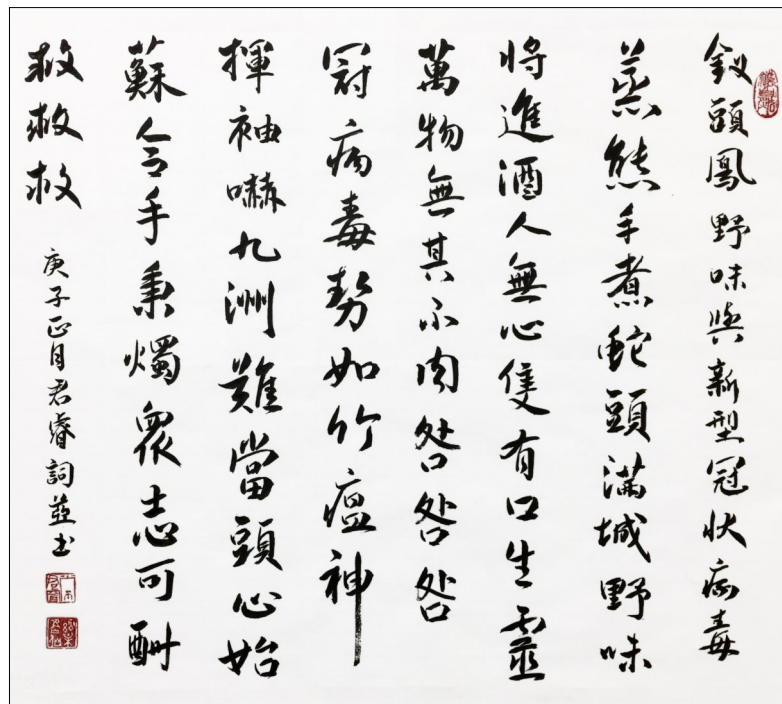 釵頭鳳野味與新型冠狀病毒
蒸熊手煮蛇頭滿城野味
將進酒人無心隻有口生靈
萬物無其不肉咎咎咎
冠病毒勢如竹瘟神
揮袖嚇九洲難當頭心始
蘇令手秉燭眾志可酬
救救救
庚子正月君睿詞並书